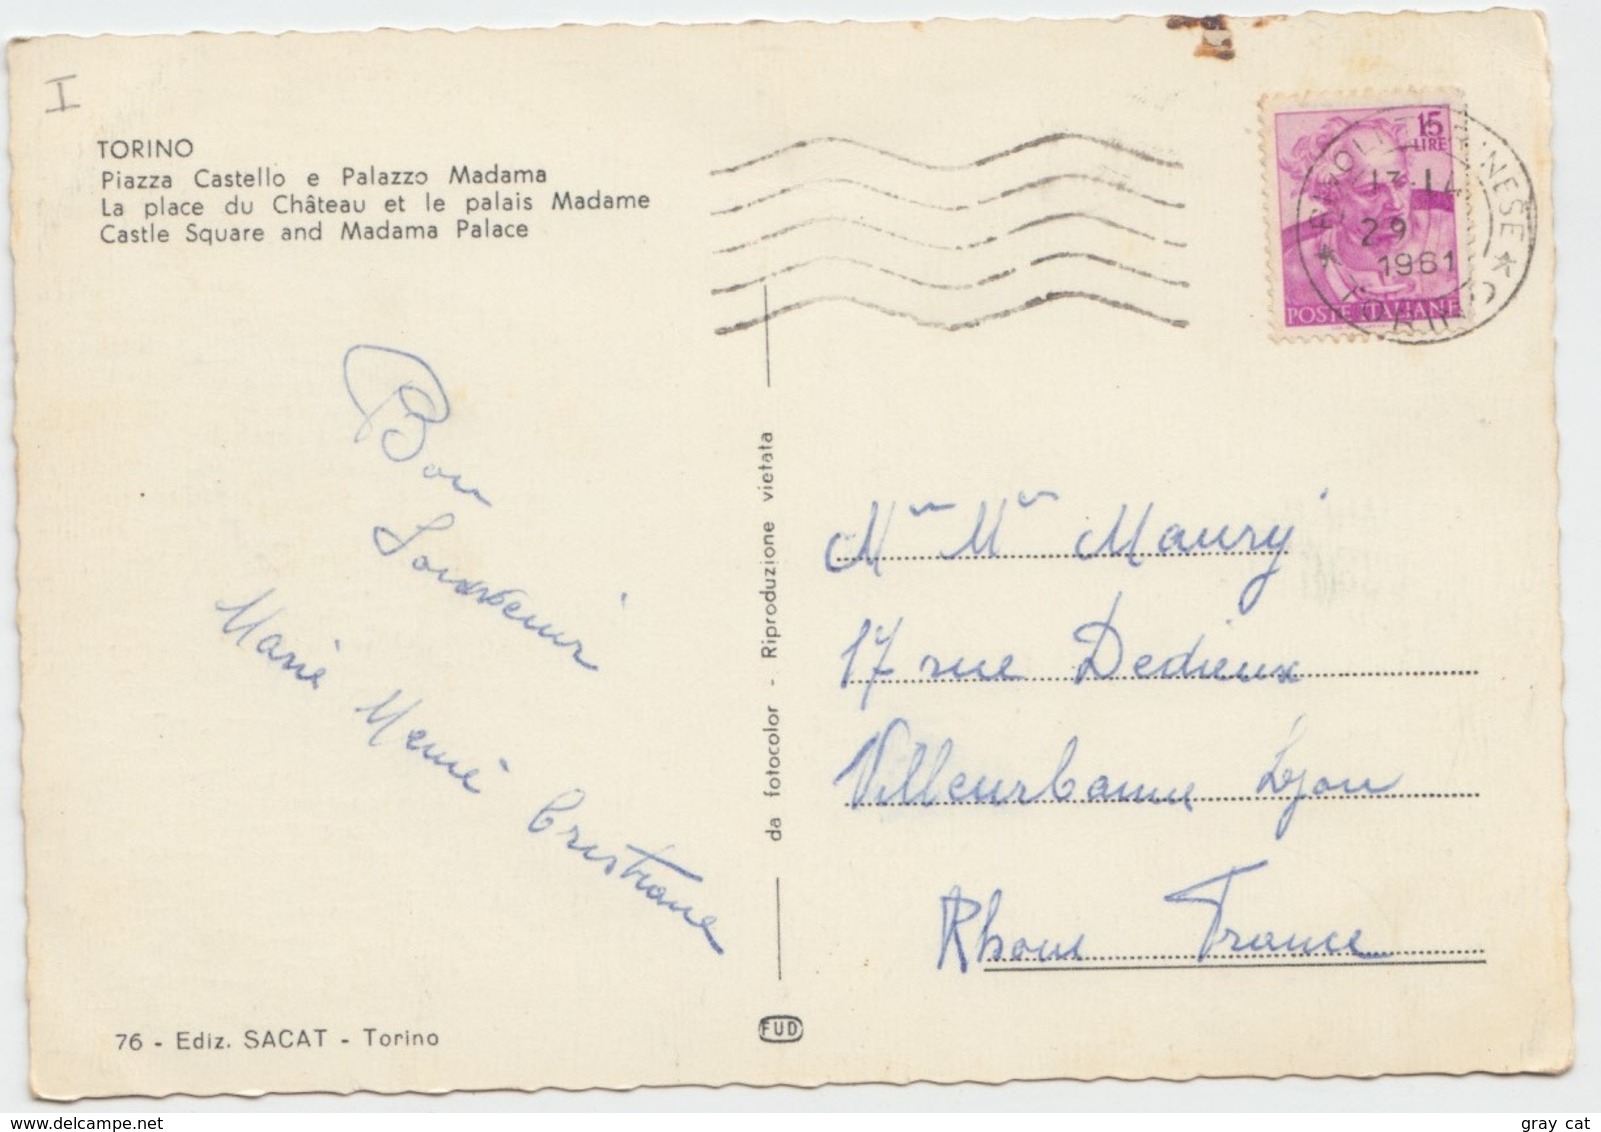 I
TORINO
Piazza Castello e Palazzo Madama
La place du Château et le palais Madame
Castle Square and Madama Palace
15
LIRE
13-14
29
1961
TORINO
POSTE ITALIANE
Bon
Souvenir
Marie Cristiane
da fotocolor - Riproduzione vietata
Mr Mr Maury
17 rue Dedieux
Villeurbanne Lyon
Rhone France
76 - Ediz. SACAT - Torino
FUD
www.delcampe.net
gray cat